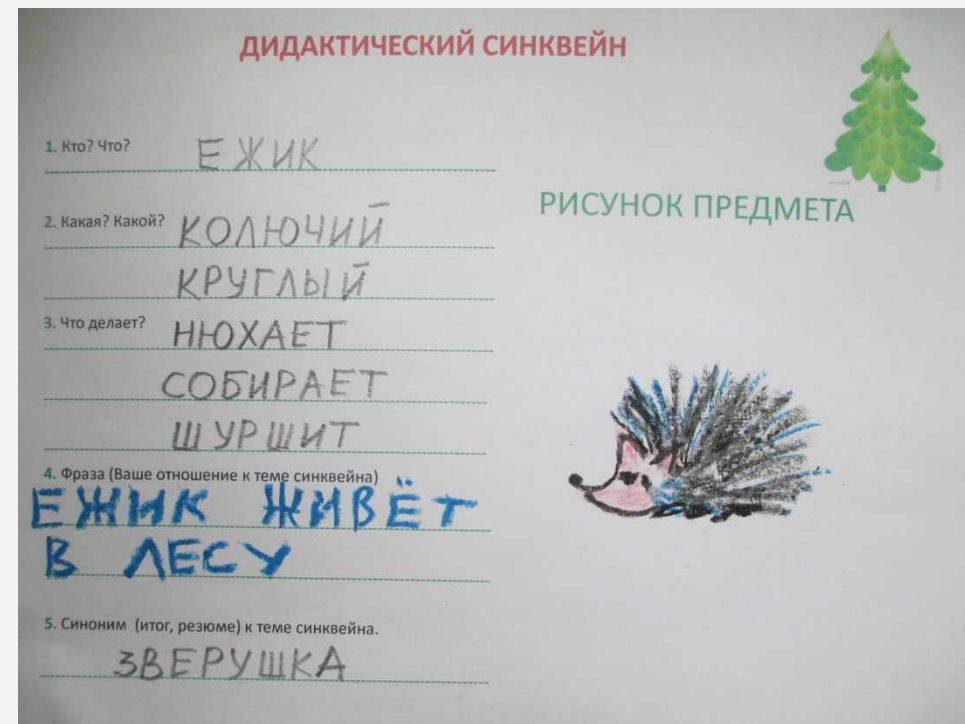 ДИДАКТИЧЕСКИЙ СИНКВЕЙН
1. Кто? Что? ЕЖИК
2. Какая? Какой? КОЛЮЧИЙ
КРУГЛЫЙ
3. Что делает? НЮХАЕТ
СОБИРАЕТ
ШУРШИТ
4. Фраза (Ваше отношение к теме синквейна)
ЕЖИК ЖИВЁТ
В ЛЕСУ
5. Синоним (итог, резюме) к теме синквейна.
ЗВЕРУШКА
РИСУНОК ПРЕДМЕТА